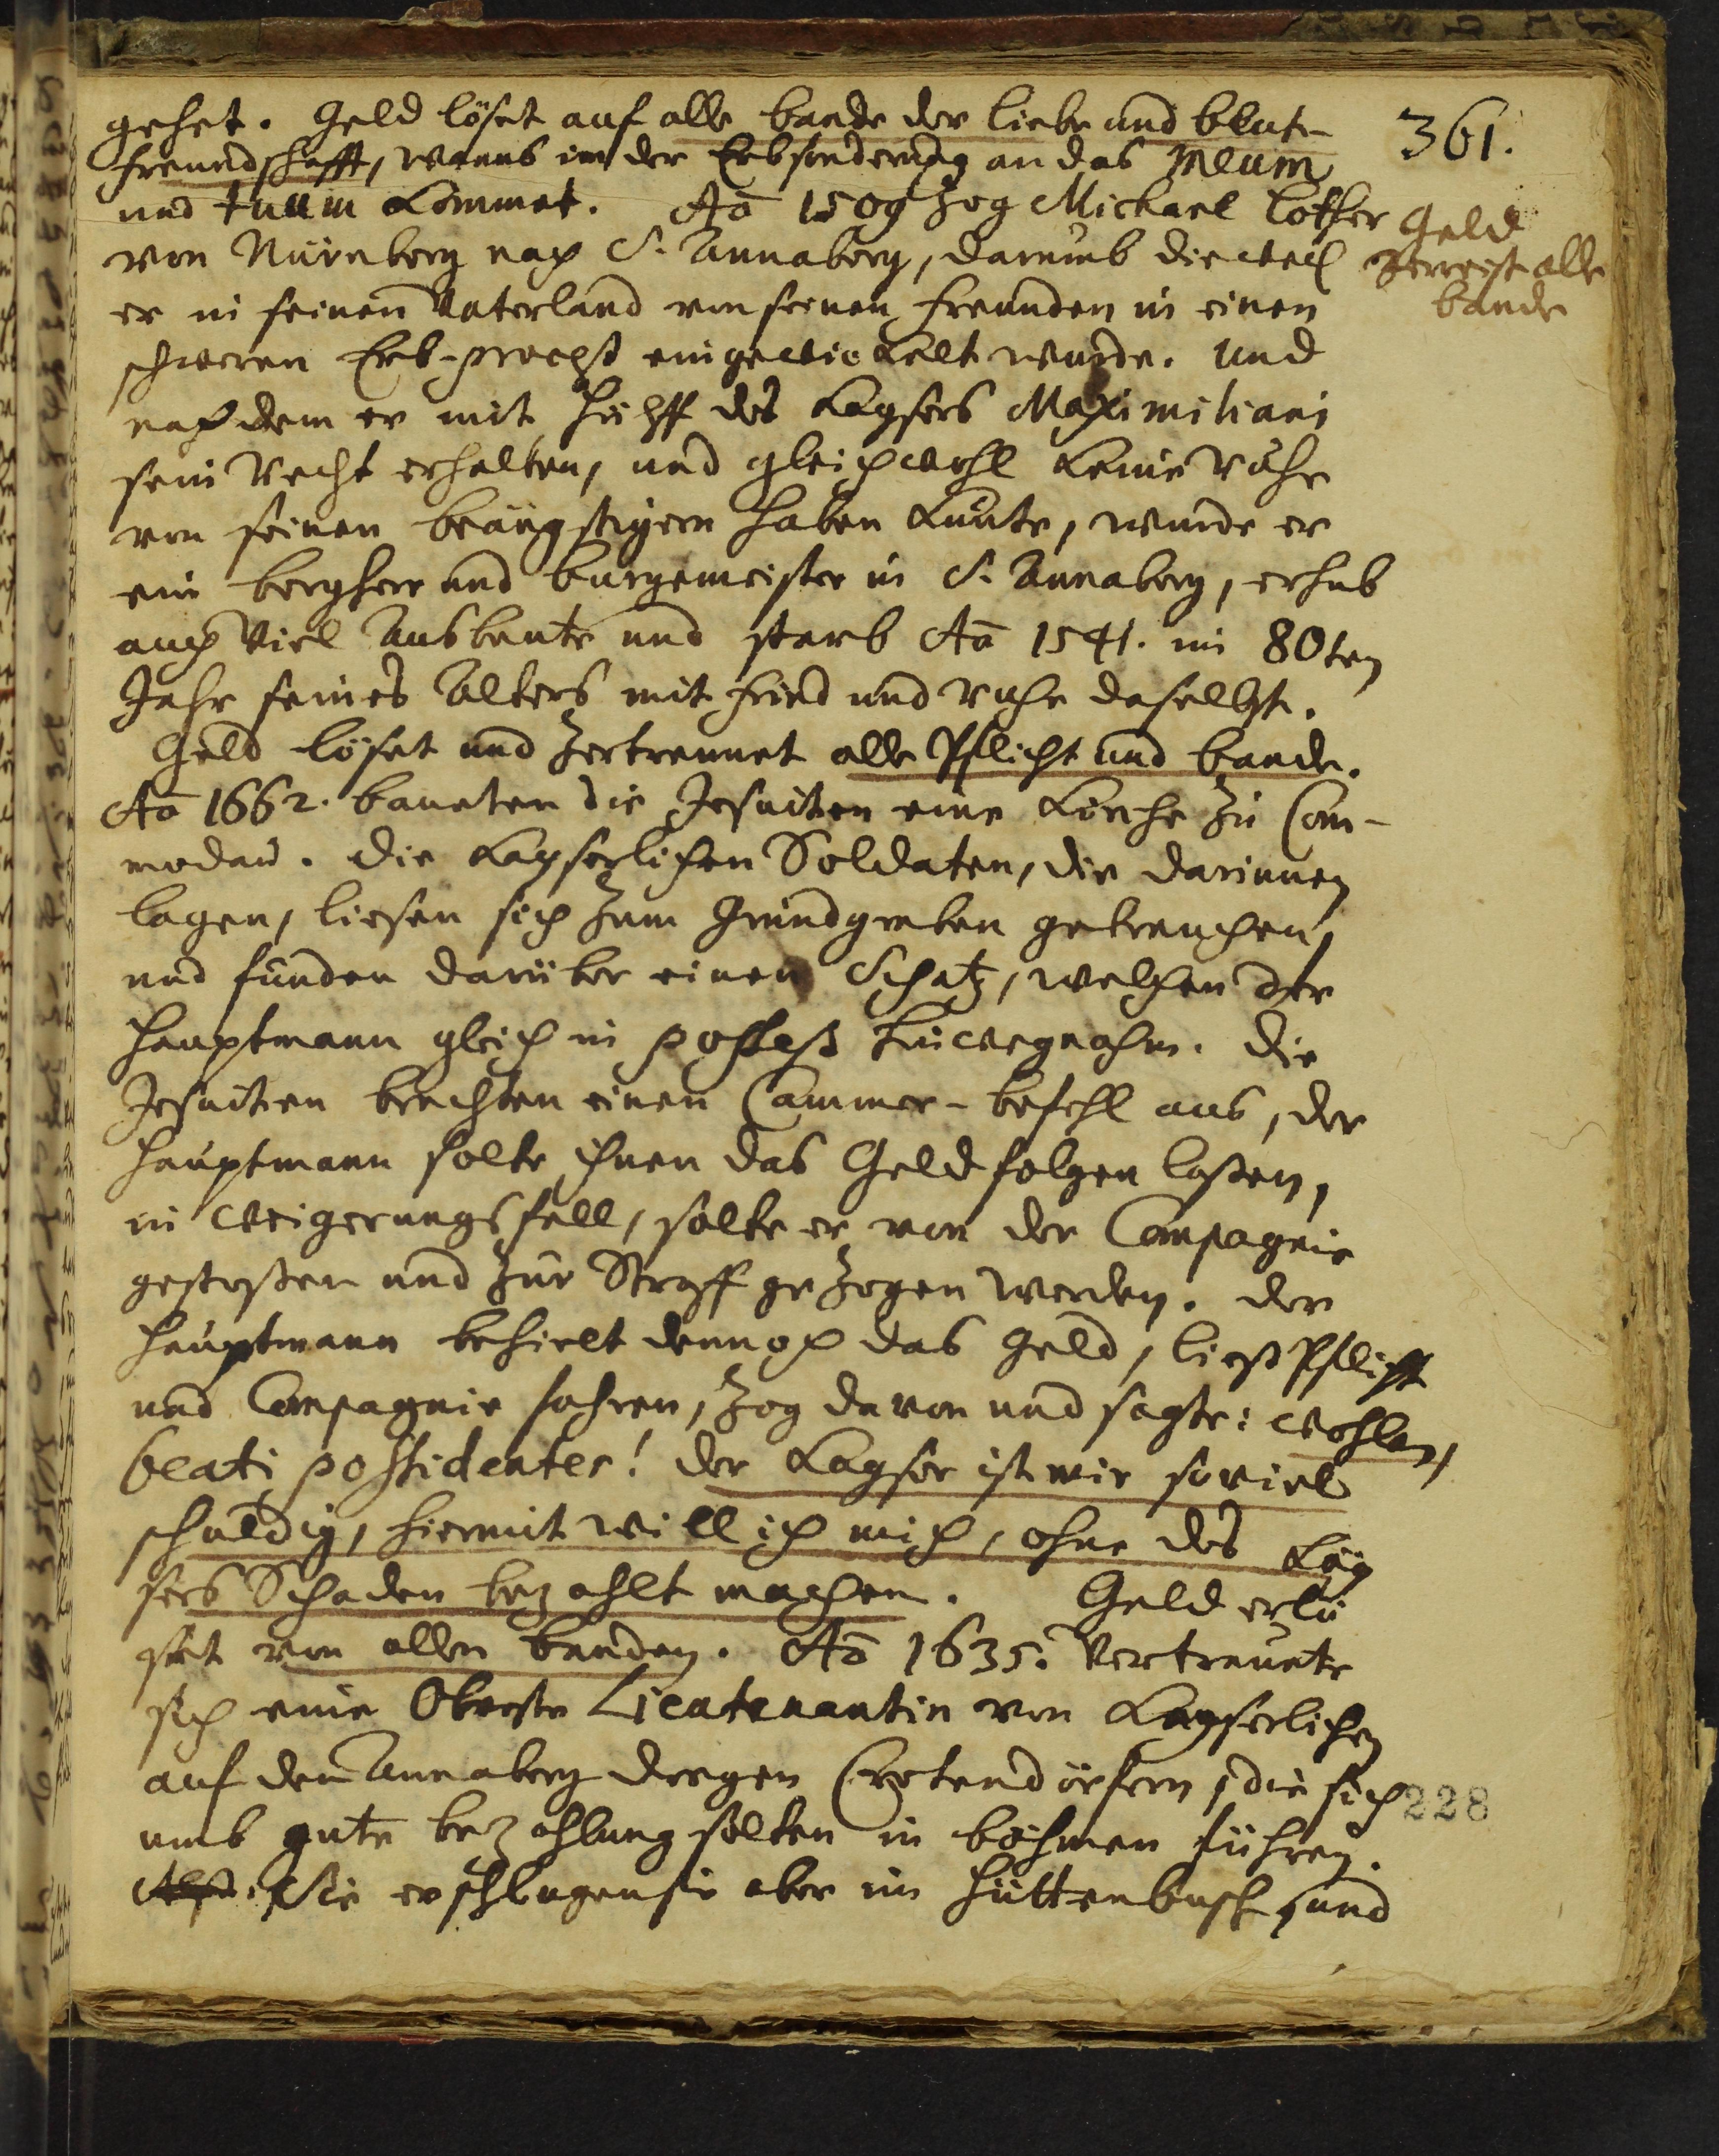 361.
gehet. Geld löset auf alle bande der liebe und blut-
freundschafft, wanns in der Erbsonderung an das Meum
und tuum kommet. Aō 1509 zog Michael Lotther
von Nürnberg nach S. Annaberg, darumb dieweil
er in seinen Vaterland von seinen freunden in einen
schweren Erb-process eingewickelt wurde. Und
nachdem er mit hülff des Kaysers Maximiliani
sein Recht erhalten, und gleichwohl keine ruhe
von seinen beängstigern haben kunte, wurde er
ein bergherr und burgemeister in S. Annaberg, erhub
auch viel Ausbeute und starb Aō 1541. im 80ten
Jahr seines Alters mit fried und ruhe daselbst.
Geld löset und zertrennet alle Pflicht und bande.
Aō 1662. baueten die Jesuiten eine Kirche zu Com-
modau. Die Kayserlichen Soldaten, die darinnen
lagen, liesen sich zum Grundgraben gebrauchen,
und funden darüber einen Schatz, welchen der
Hauptmann gleich in possess hinwegnahm. Die
Jesuiten brachten einen Cammer-befehl aus, der
Hauptmann solte ihnen das Geld folgen lassen,
in Weigerungsfall, solte er von der Compagnie
gestossen und zur Straff gezogen werden. Der
Hauptmann behielt dennoch das Geld, liess Pflicht
und Compagnie fahren, zog davon und sagte: Wohlan,
beati possidentes! der Kayser ist mir soviel
schuldig, hiermit will ich mich, ohne des Kay
sers Schaden bezahlt machen. Geld erlö
set von allen banden. Aō 1635. Vertrauete
sich eine Obriste Lieutenantin von Kayserlichen
auf den Annaberg dreyen Crotendörfern, die sich
umb gute bezahlung solten in böhmen führen.
Sie erschlugen sie aber im Hüttenbusch, und
Geld
Zerreist alle
bande
228